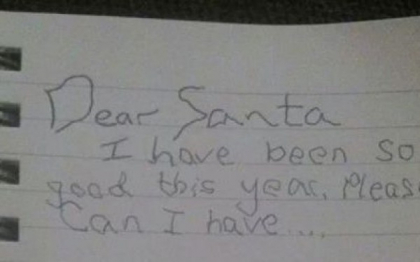 Dear Santa
I have been so
good this year. Pleas
Can I have...